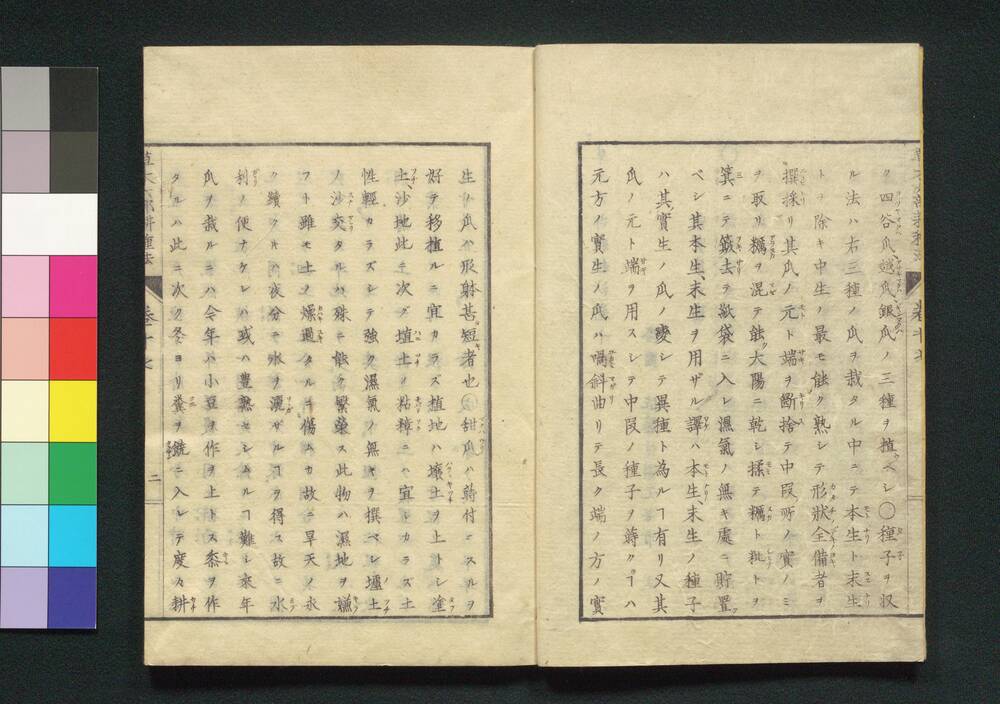 ク四谷瓜越瓜銀瓜ノ三種ヲ植ベシ〇種子ヲ収
ル法ハ右三種ノ瓜ヲ栽タル中ニテ本生ト末生
トヲ除キ中生ノ最モ能ク熟シテ形狀全備者ヲ
撰採リ其瓜ノ元ト端ヲ斷捨テ中段所ノ實ノミ
ヲ取リ糯ヲ混テ能大陽ニ乾シ揉テ糯ト粃トヲ
箕ニテ簸去テ歛袋ニ入レ濕氣ノ無キ處ニ貯置
ベシ其本生、末生ヲ用ザル譯ハ本生、末生ノ種子
ハ其實生ノ瓜ノ變シテ異種ト為ルヿ有リ又其
瓜ノ元ト端ヲ用スレテ中段ノ種子ヲ蒔クヿハ
元方ノ實生ノ瓜ハ喎斜曲リテ長ク端ノ方ノ實
生ノ瓜ハ形躰甚短者也〇甜瓜ハ蒔付ニスルヲ
好テ移植ルニ宜カラス植地ハ壤土ヲ上トシ塗
土、沙地此ニ次グ埴土ノ粘樟ニハ宜シカラズ土
性輕カラズシテ強ク濕氣ノ無キヲ撰ベシ壚土
ノ沙交タルハ殊ニ能ク繁榮ス此物ハ濕地ヲ嫌
フト雖モ土ノ燥過タルニ傷ムカ故ニ旱天ノ永
ク續クルハ夜分ニ水ヲ澆ザルヿヲ得ス故ニ水
利ノ便ナケレハ或ハ豊熟セシムルヿ難シ來年
瓜ヲ栽ルニハ今年ハ小豆ヲ作ヲ上トス黍ヲ作
タルハ此ニ次ク冬ヨリ糞ヲ鋭ニ入レテ度々耕
二